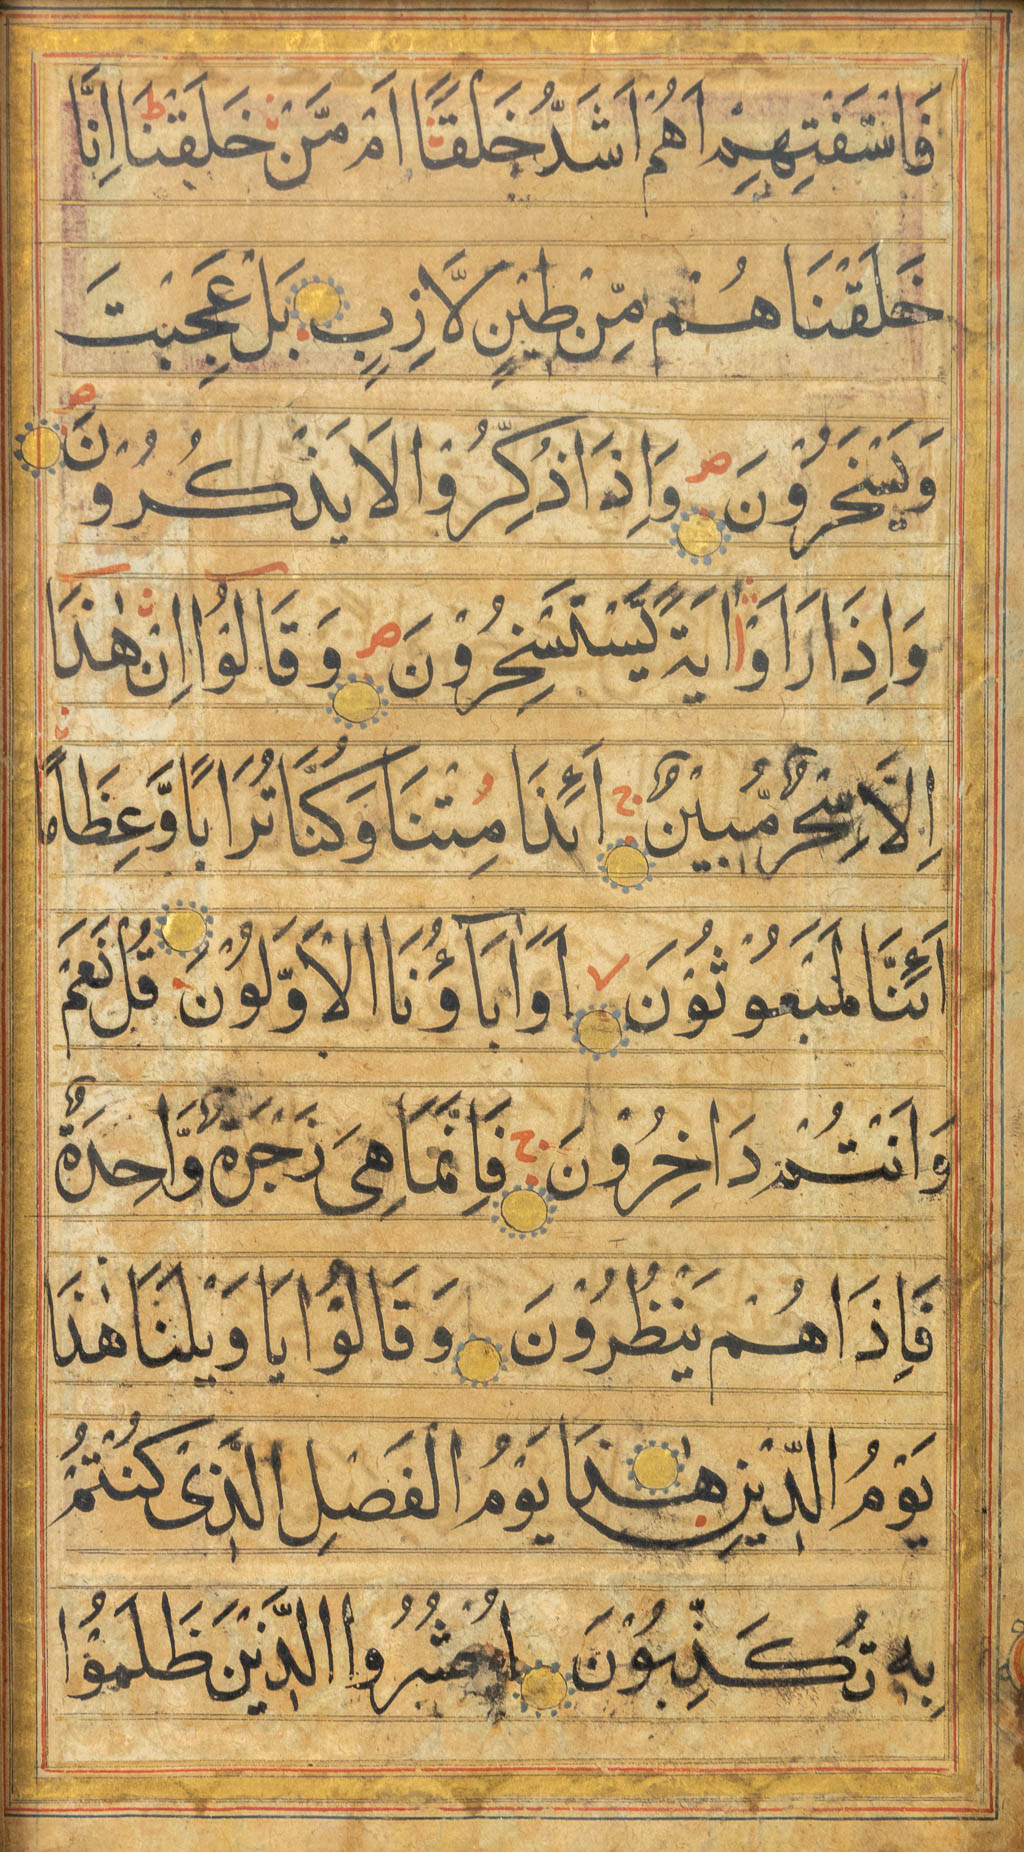 فَاسْتَفْتِهِمْ اَهُمْ اَشَدُّ خَلْقًا اَمْ مَّنْ خَلَقْنَا اِنَّا
خَلَقْنَاهُمْ مِّنْ طِيْنٍ لَّازِبٍ بَلْ عَجِبْتَ
وَيَسْخَرُوْنَ ص وَاِذَا ذُكِّرُوْا لَا يَذْكُرُوْنَ ص
وَاِذَا رَاَوْا اٰيَةً يَّسْتَسْخِرُوْنَ ص وَقَالُوْا اِنْ هٰذَا
اِلَّا سِحْرٌ مُّبِيْنٌ ج اَئِذَا مِتْنَا وَكُنَّا تُرَابًا وَّعِظَامًا
اَئِنَّا لَمَبْعُوْثُوْنَ اَوَاٰبَآؤُنَا الْاَوَّلُوْنَ قُلْ نَعَمْ
وَاَنْتُمْ دَاخِرُوْنَ ج فَاِنَّمَا هِيَ زَجْرَةٌ وَّاحِدَةٌ
فَاِذَا هُمْ يَنْظُرُوْنَ وَقَالُوْا يَا وَيْلَنَا هٰذَا
يَوْمُ الدِّيْنِ هٰذَا يَوْمُ الْفَصْلِ الَّذِىْ كُنْتُمْ
بِهٖ تُكَذِّبُوْنَ اُحْشُرُوا الَّذِيْنَ ظَلَمُوْا